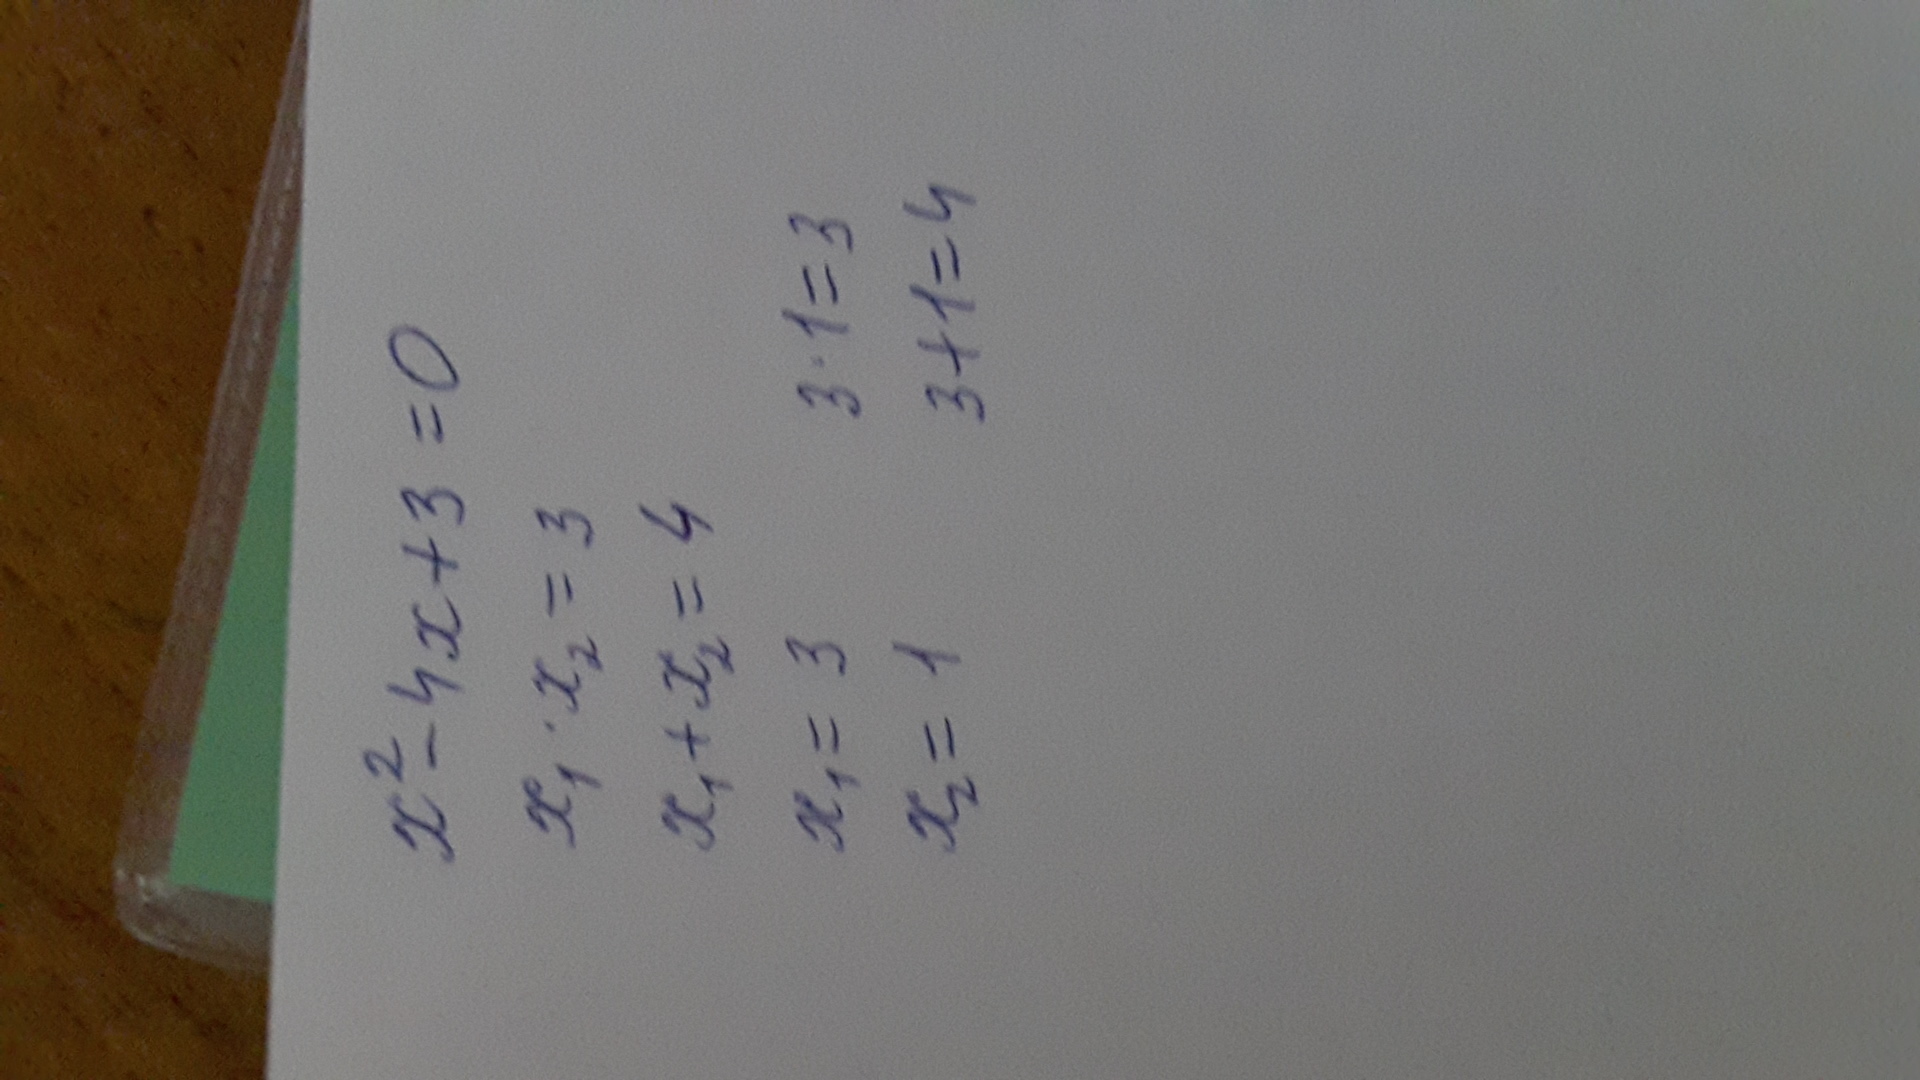 x² - 4x + 3 = 0
x₁ · x₂ = 3
x₁ + x₂ = 4
x₁ = 3 3 · 1 = 3
x₂ = 1 3 + 1 = 4